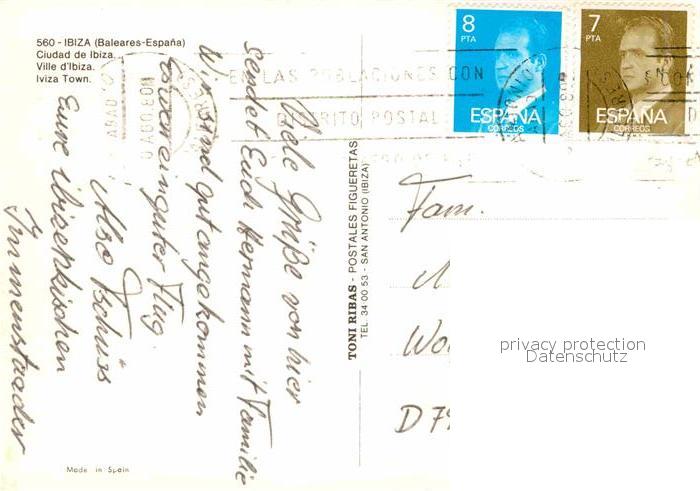 560 - IBIZA (Baleares-España)
Ciudad de Ibiza.
Ville d'Ibiza.
Iviza Town.
8
PTA
ESPAÑA
CORREOS
7
PTA
ESPAÑA
CORREOS
EN LAS POBLACIONES CON
DISTRITO POSTAL
Viele Grüße von hier
sendet Euch Hermann mit Familie
Wir sind gut angekommen
ein guter Flug.
Also Tschüss
Eure ibizenkischen
Immenstaader
TONI RIBAS - POSTALES FIGUERETAS
TEL. 34 00 53 - SAN ANTONIO (IBIZA)
Fam.
D 79
privacy protection
Datenschutz
Made in Spain